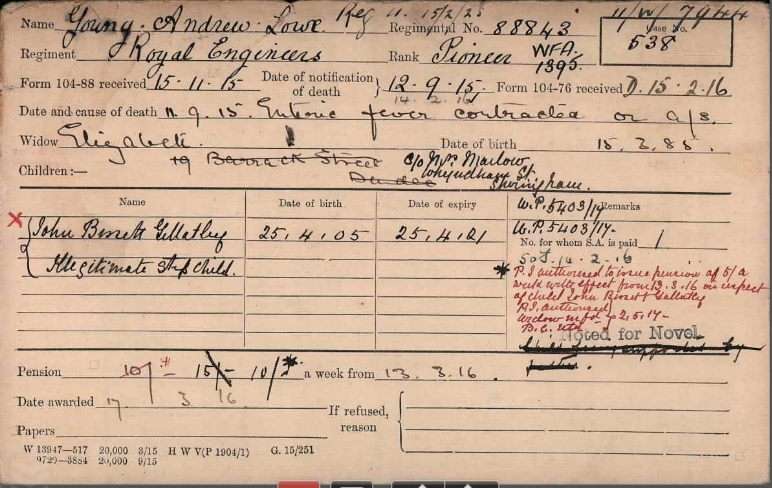 Name Young. Andrew Lowe. Reg 11. 15/2/25 Regimental No. 88843 11/W/7944
Case No. 538
Regiment Royal Engineers Rank Pioneer WFA. 1395
Form 104-88 received 15.11.15 Date of notification of death } 12.9.15. Form 104-76 received D.15.2.16
14.2.16
Date and cause of death 11.9.15. Enteric fever contracted on a/s.
Widow Elizabeth. Date of birth 15.3.85.
19 Barrack Street Dundee c/o Mrs Marlow
Whyndham St
Sheringham.
Children:—
Name Date of birth Date of expiry W.P.5403/17 Remarks
John Bissett Gellatley 25.4.05 25.4.21 W.P.5403/17.
No. for whom S.A. is paid 1
Illegitimate step child. 14.2.16
* P.I authorised to issue pension of 5/ a
week with effect from 13.3.16 in respect
of child John Bissett Gellatley
P.I. authorised
Widow 2.5.17-
Noted for Novel
Child being supported by
father.
Pension 10/-* 15/- 10/-* a week from 13.3.16.
Date awarded 17 3 16 If refused, reason
Papers
W 13947—517 20,000 3/15 H W V(P 1904/1) G. 15/251
9729—3884 20,000 9/15